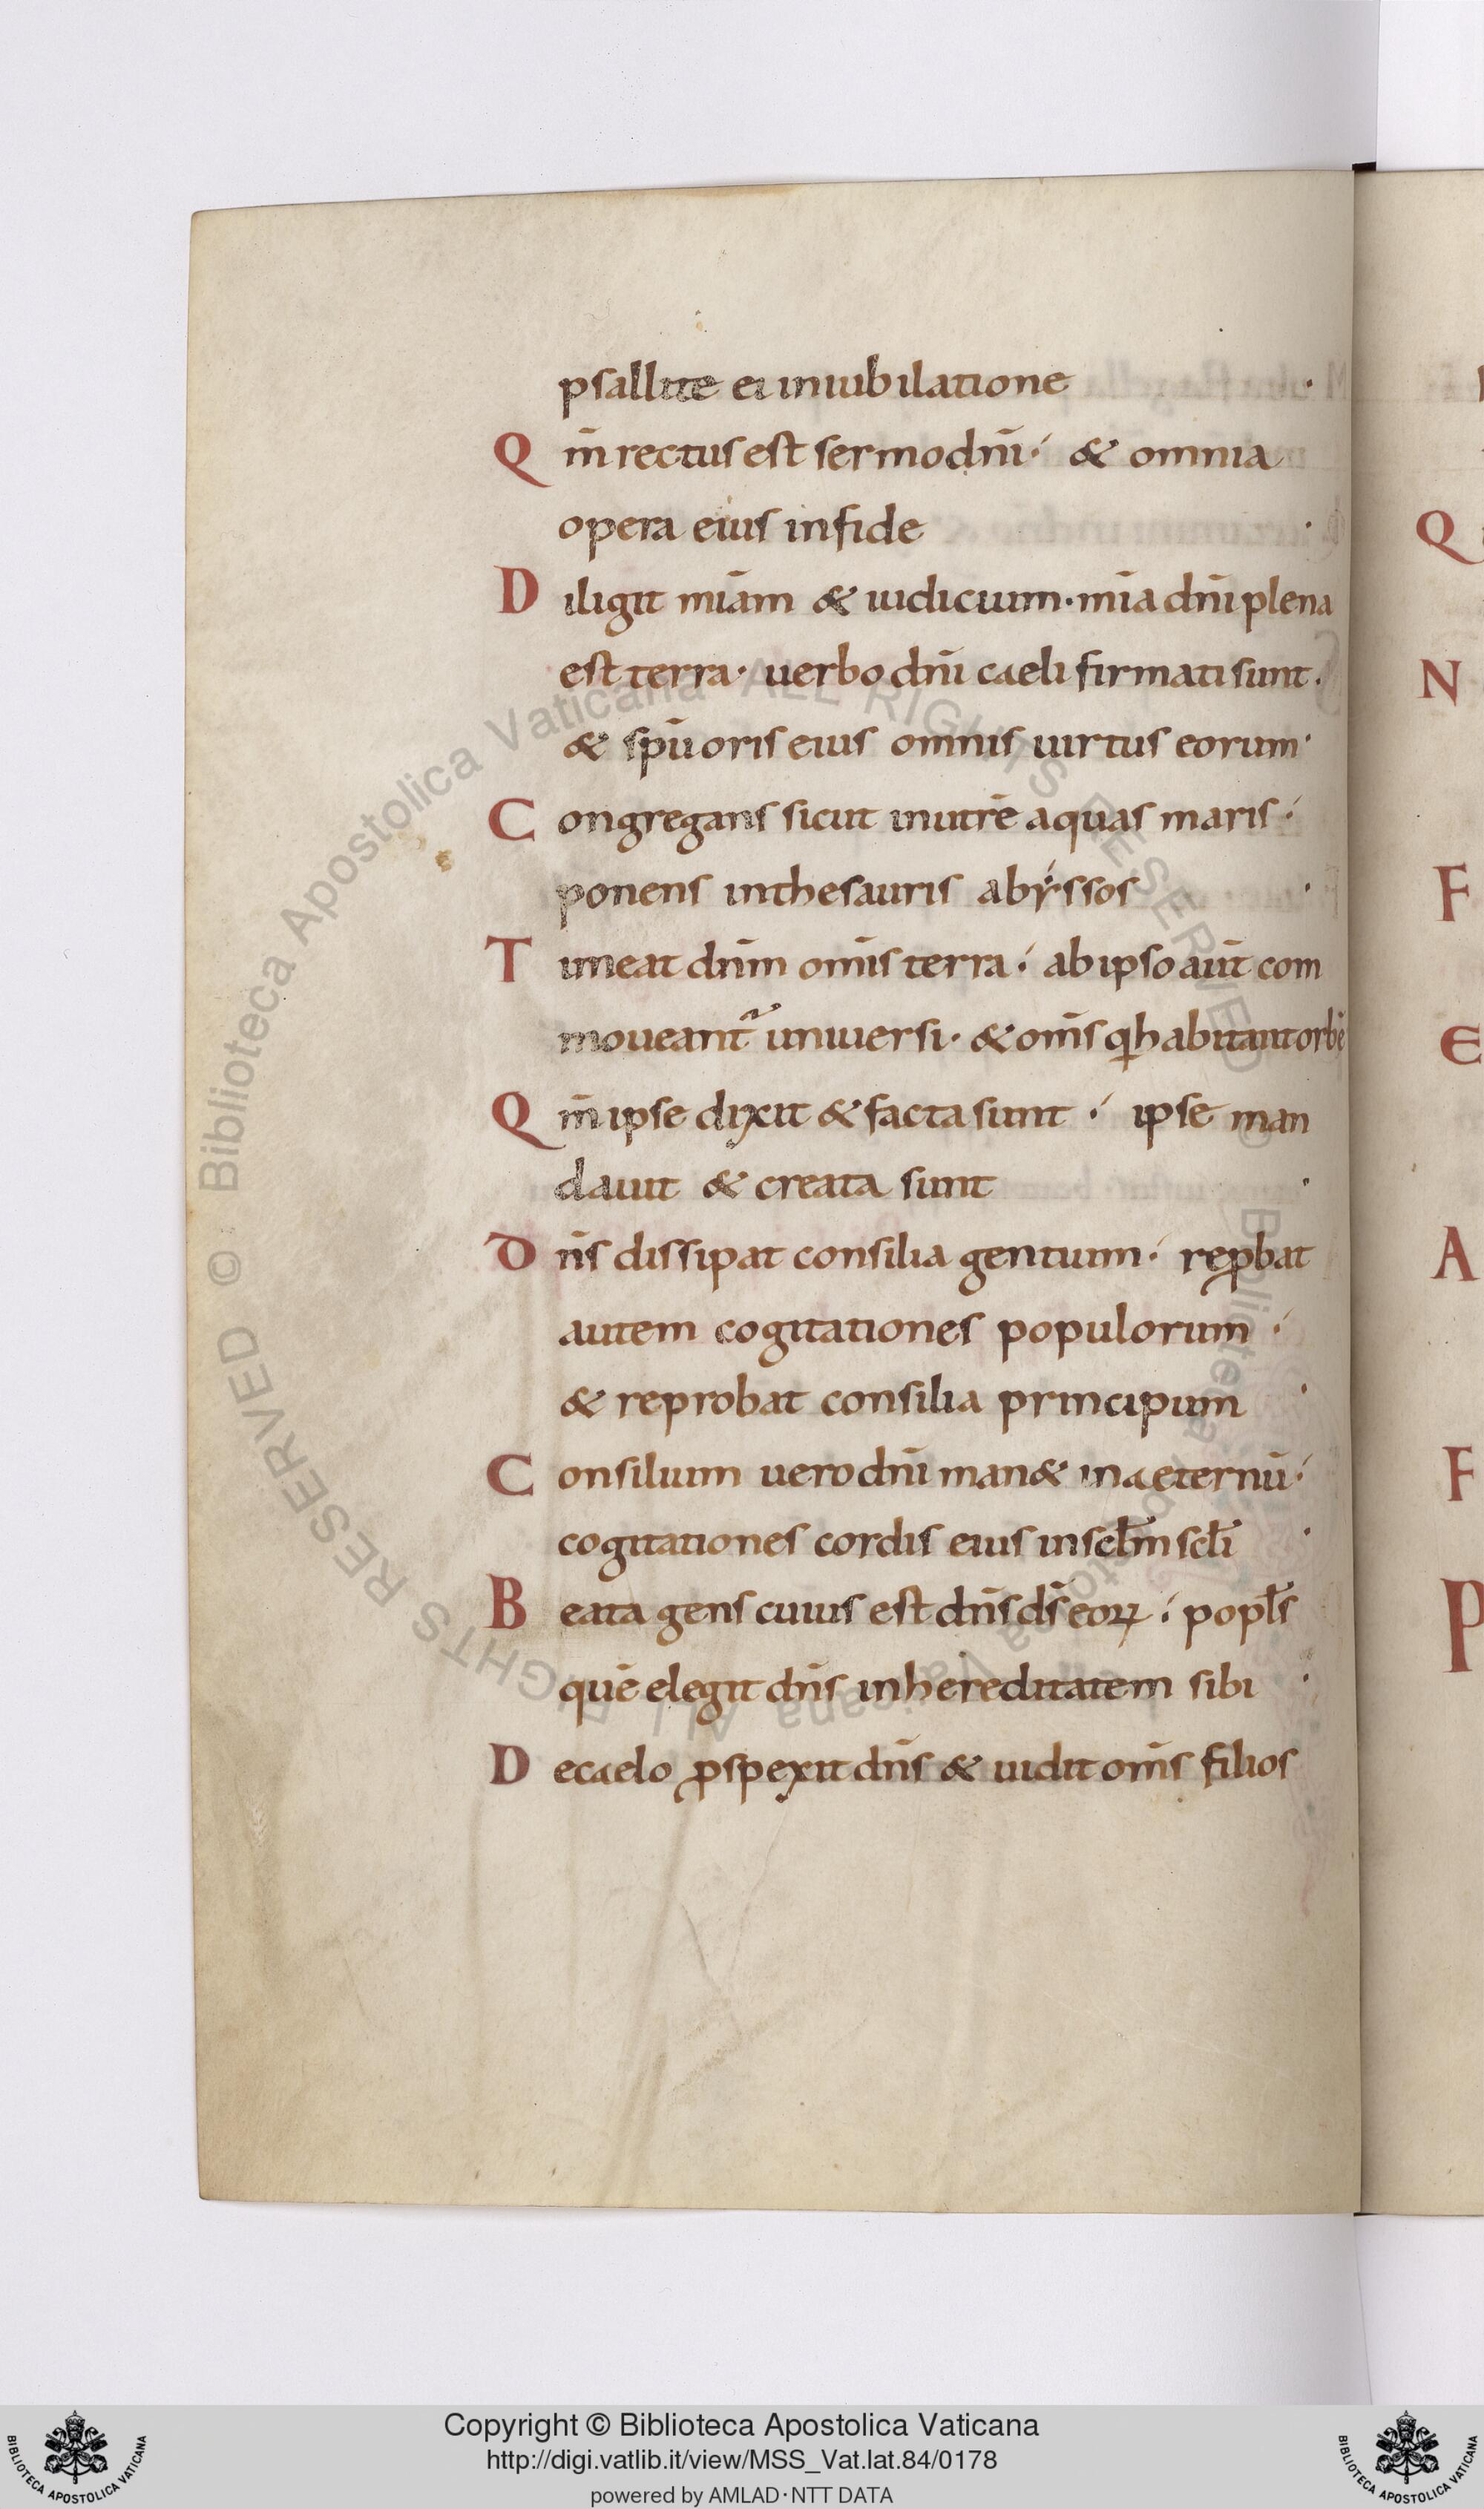 psallite ei iniubilatione ·
Q m̄ rectus est sermo dn̄i· & omnia
opera eius in fide ·
D iligit miām & iudicium· mīa dn̄i plena
est terra· uerbo dn̄i caeli firmati sunt·
& sp̄u oris eius omnis uirtus eorum·
C ongregans sicut inutrē aquas maris·
ponens inthesauris abyssos ·
T imeat dn̄m om̄is terra· ab ipso aūt com
moueant᷑ uniuersi· & om̄s qͥ habitant orbē
Q m̄ ipse dixit & facta sunt · ipse man
dauit & creata sunt ·
D n̄s dissipat consilia gentium· reꝓbat
autem cogitationes populorum ·
& reprobat consilia principum ·
C onsilium uero dn̄i man& in aeternū·
cogitationes cordis eius in scl̄m scl̄i ·
B eata gens cuius est dn̄s ds̄ eoꝝ · popl̄s
quē elegit dn̄s inhereditatem sibi ·
D ecaelo ꝓspexit dn̄s & uidit om̄s filios
Q
N
F
E
A
F
P
Copyright © Biblioteca Apostolica Vaticana
http://digi.vatlib.it/view/MSS_Vat.lat.84/0178
powered by AMLAD·NTT DATA
BIBLIOTECA APOSTOLICA VATICANA
BIBLIOTECA APOSTOLICA VATICANA
© Biblioteca Apostolica Vaticana ALL RIGHTS RESERVED © Biblioteca Apostolica Vaticana ALL RIGHTS RESERVED